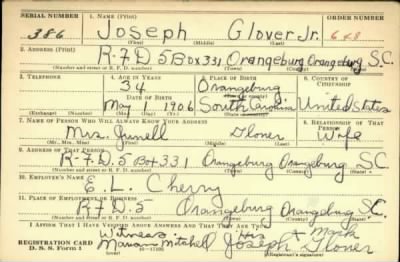 SERIAL NUMBER 1. NAME (Print) ORDER NUMBER
386 Joseph Glover Jr. 648
(First) (Middle) (Last)
2. ADDRESS (Print)
R-7 D 5 Box 331 Orangeburg Orangeburg S.C.
(Number and street or R. F. D. number) (Town) (County) (State)
3. TELEPHONE 4. AGE IN YEARS 5. PLACE OF BIRTH 6. COUNTRY OF CITIZENSHIP
34 Orangeburg
DATE OF BIRTH (Town or county)
May 1 1906 South Carolina United States
(Mo.) (Day) (Yr.) (State or country)
7. NAME OF PERSON WHO WILL ALWAYS KNOW YOUR ADDRESS 8. RELATIONSHIP OF THAT PERSON
Mrs. Glover Wife
(Mr., Mrs., Miss) (First) (Middle) (Last)
9. ADDRESS OF THAT PERSON
R-7 D. 5 Box 331 Orangeburg Orangeburg S.C.
(Number and street or R. F. D. number) (Town) (County) (State)
10. EMPLOYER'S NAME
E. L. Cherry
11. PLACE OF EMPLOYMENT OR BUSINESS
R-7 D. 5 Orangeburg Orangeburg S.C.
(Number and street or R. F. D. number) (Town) (County) (State)
I AFFIRM THAT I HAVE VERIFIED ABOVE ANSWERS AND THAT THEY ARE TRUE.
Witness His x Mark
REGISTRATION CARD Mitchell Joseph Glover
D. S. S. Form 1 (Registrant's signature)